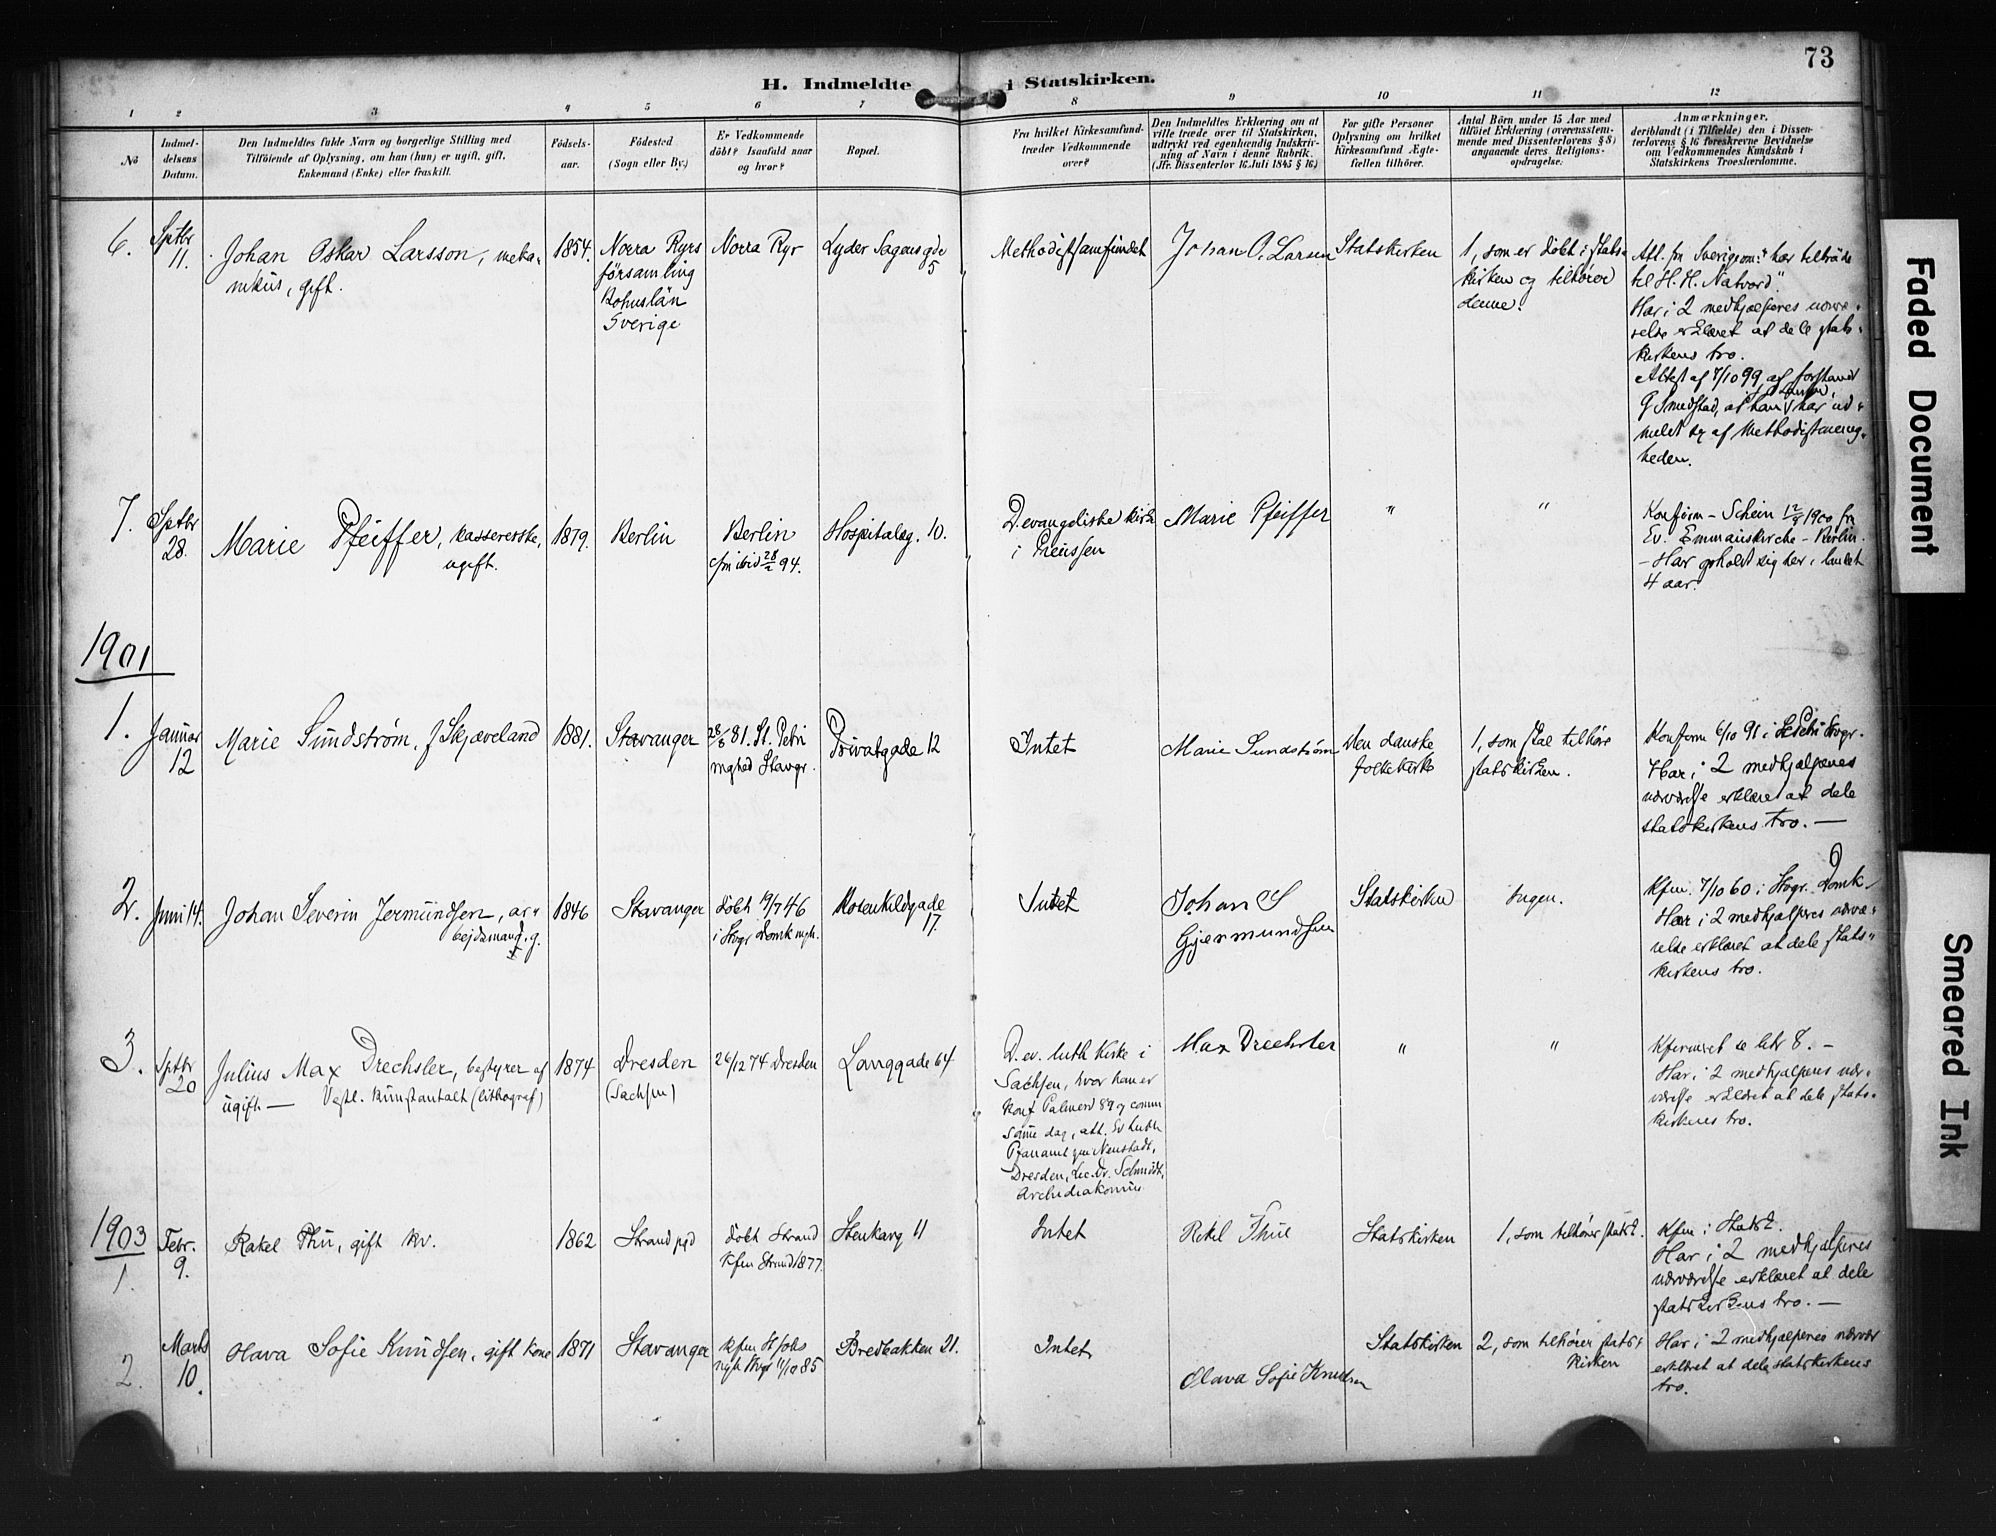 73
H. Indmeldte i Statskirken.
1 2 3 4 5 6 7 8 9 10 11 12
No
Indmel-
delsens
Datum.
Den Indmeldtes fulde Navn og borgerlige Stilling med
Tilföiende af Oplysning, om han (hun) er ugift, gift,
Enkemand (Enke) eller fraskilt.
Födsels-
aar.
Födested
(Sogn eller By.)
Er Vedkommende
döbt? Isaafald naar
og hvor?
Bopæl.
Fra hvilket Kirkesamfund-
træder Vedkommende
over?
Den Indmeldtes Erklæring om at
ville træde over til Statskirken,
udtrykt ved egenhændig Indskriv-
ning af Navn i denne Rubrik.
(Jfr. Dissenterlov 16 Juli 1845 § 16.)
For gifte Personer
Oplysning om hvilket
Kirkesamfund Ægte-
fællen tilhörer.
Antal Börn under 15 Aar med
tilföiet Erklæring (overensstem-
mende med Dissenterlovens § 8)
angaaende deres Religions-
opdragelse.
Anmærkninger,
deriblandt (i Tilfælde) den i Dissen-
terlovens § 16 foreskrevne Bevidnelse
om Vedkommendes Kundskab i
Statskirkens Troeslærdomme.
6.
Sptbr
11.
Johan Oskar Larsson, meka-
nikus, gift.
1854.
Norra Ryrs
församling
Bohuslän
Sverige
Norra Ryr
Lyder Sagensgde
5
Methodistsamfundet
Johan O. Larsen
Statskirken
1, som er döbt i stats-
kirken og tilhörer
denne.
til H. H. Nattvard".
Har i 2 medhjælperes nærvæ-
relse erklæret at dele stats-
kirkens tro.
Attest af 7/10 99 af forstand
G Smedstad, at han har ud-
meldt sig af Methodistmenig-
heden.
7.
Sptbr
28.
Marie Pfeiffer, kassererske,
ugift.
1879.
Berlin
Berlin
cfm ibid 28/2 94.
Hospitalsg. 10.
D. evangeliske kirke
i Preussen
Marie Pfeiffer
"
"
Konfirm-Schein 12/9 1900 fra
Ev. Emmauskirche - Berlin.
- Har opholdt sig her i landet
4 aar.
1901
1.
Januar
12
Marie Sundström, f Skjæveland
1881.
Stavanger
81. St. Petri
mghed Stavgr.
Privatgade 12
Intet
Marie Sundström
Den danske
folkekirke
1, som skal tilhöre
statskirken.
Konfirm 6/10 91 i St Petri Stvgr.
Har i 2 medhjælperes
nærværelse erklæret at dele
statskirkens tro. —
2.
Juni 14.
Johan Severin Jermundsen, ar-
bejdsmand, g.
1846
Stavanger
döbt 19/7 46
i Stvgr Domk mgh.
Rosenkildgade
17.
Intet
Johan S
Gjermundsen
Statskirken
Ingen.
Kfm. 7/10 60 i Stvgr. Domk-
Har i 2 medhjælperes nærvæ-
relse erklæret at dele stats-
kirkens tro.
3.
Sptbr
20
Julius Max Drechsler, bestyrer af
ugift — Vestl. kunstanstalt (lithograf)
1874
Dresden
(Sachsen)
26/12 74 Dresden
Langgade 64
D. ev. luth kirke i
Sachsen, hvor han er
konf Palmesö 89 og comm
samme dag, att. Ev luth
Pfarramt zu Neustadt,
Dresden, Lic. Dr. Schmidt,
Archidiakonus.
Max Drechsler
"
"
Kfirmeret se litr 8. -
Har i 2 medhjælperes nær-
værelse erklæret at dele stats-
kirkens tro.
1903
1.
Febr.
9.
Rakel Thu, gift kv.
1862
Strand pgd
döbt Strand
Kfm Strand 1877.
Stenkarg 11
Intet
Rakel Thue
Statskirken
1, som tilhörer statsk.
Kfm i Statsk.
Har i 2 medhjælperes
nærværelse erklæret at dele
statskirkens tro. —
2.
Marts
10.
Olava Sofie Knudsen, gift kone
1871
Stavanger
Kfm St Johs
mgh Stvgr 11/10 85
Bredbakken 21.
Intet
Olava Sofie Knudsen
Statskirken
2, som tilhörer stats-
kirken
Har i 2 medhjælperes nærvær
erklæret at dele statskirkens
tro.
Faded Document
Smeared Ink